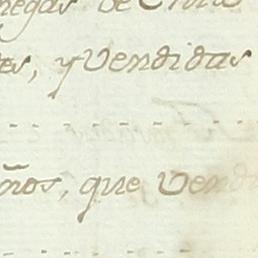 negas de
es, y Vendidas
ños, que Vend